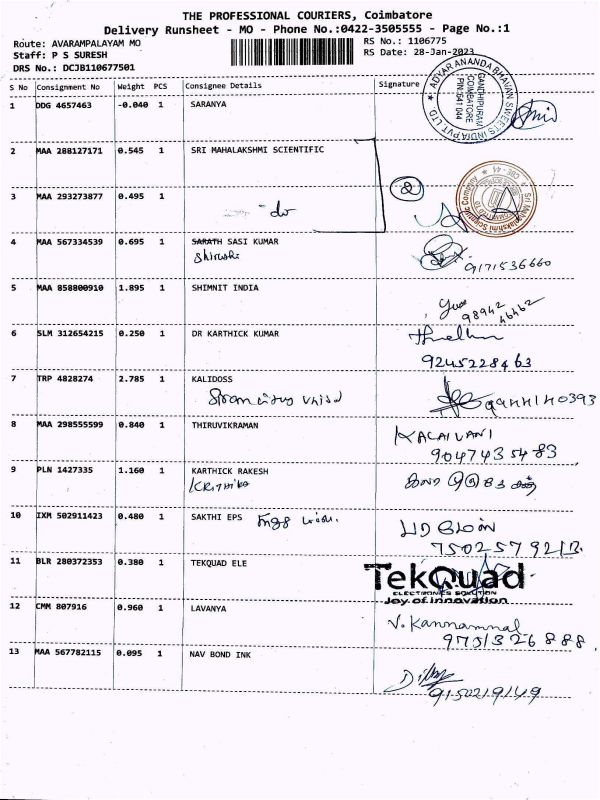 THE PROFESSIONAL COURIERS, Coimbatore
Delivery Runsheet - MO - Phone No.:0422-3505555 - Page No.:1
Route: AVARAMPALAYAM MO
RS No.: 1106775
Staff: P S SURESH
RS Date: 28-Jan-2023
DRS No.: DCJB110677501
S No Consignment No Weight PCS Consignee Details Signature
ADYAR ANANDA BHAVAN SWEETS INDIA PVT LTD.
GANDHIPURAM
COIMBATORE
PIN:641 044
1 DDG 4657463 -0.040 1 SARANYA
2 MAA 288127171 0.545 1 SRI MAHALAKSHMI SCIENTIFIC
2
Sri Mahalakshmi Scientific Company
3 MAA 293273877 0.495 1
4 MAA 567334539 0.695 1 SARATH SASI KUMAR
9171536660
5 MAA 858800910 1.895 1 SHIMNIT INDIA
98942
46462
6 SLM 312654215 0.250 1 DR KARTHICK KUMAR
9245228463
7 TRP 4828274 2.785 1 KALIDOSS
8 MAA 298555599 0.840 1 THIRUVIKRAMAN
KALAIVANI
9047435483
9 PLN 1427335 1.160 1 KARTHICK RAKESH
KRITHIKA
10 IXM 502911423 0.480 1 SAKTHI EPS
11 BLR 280372353 0.380 1 TEKQUAD ELE
TekQuad
ELECTRONICS SOLUTION
Joy of innovation
12 CMM 807916 0.960 1 LAVANYA
V. Kannammal
9751326888
13 MAA 567782115 0.095 1 NAV BOND INK
9150219149